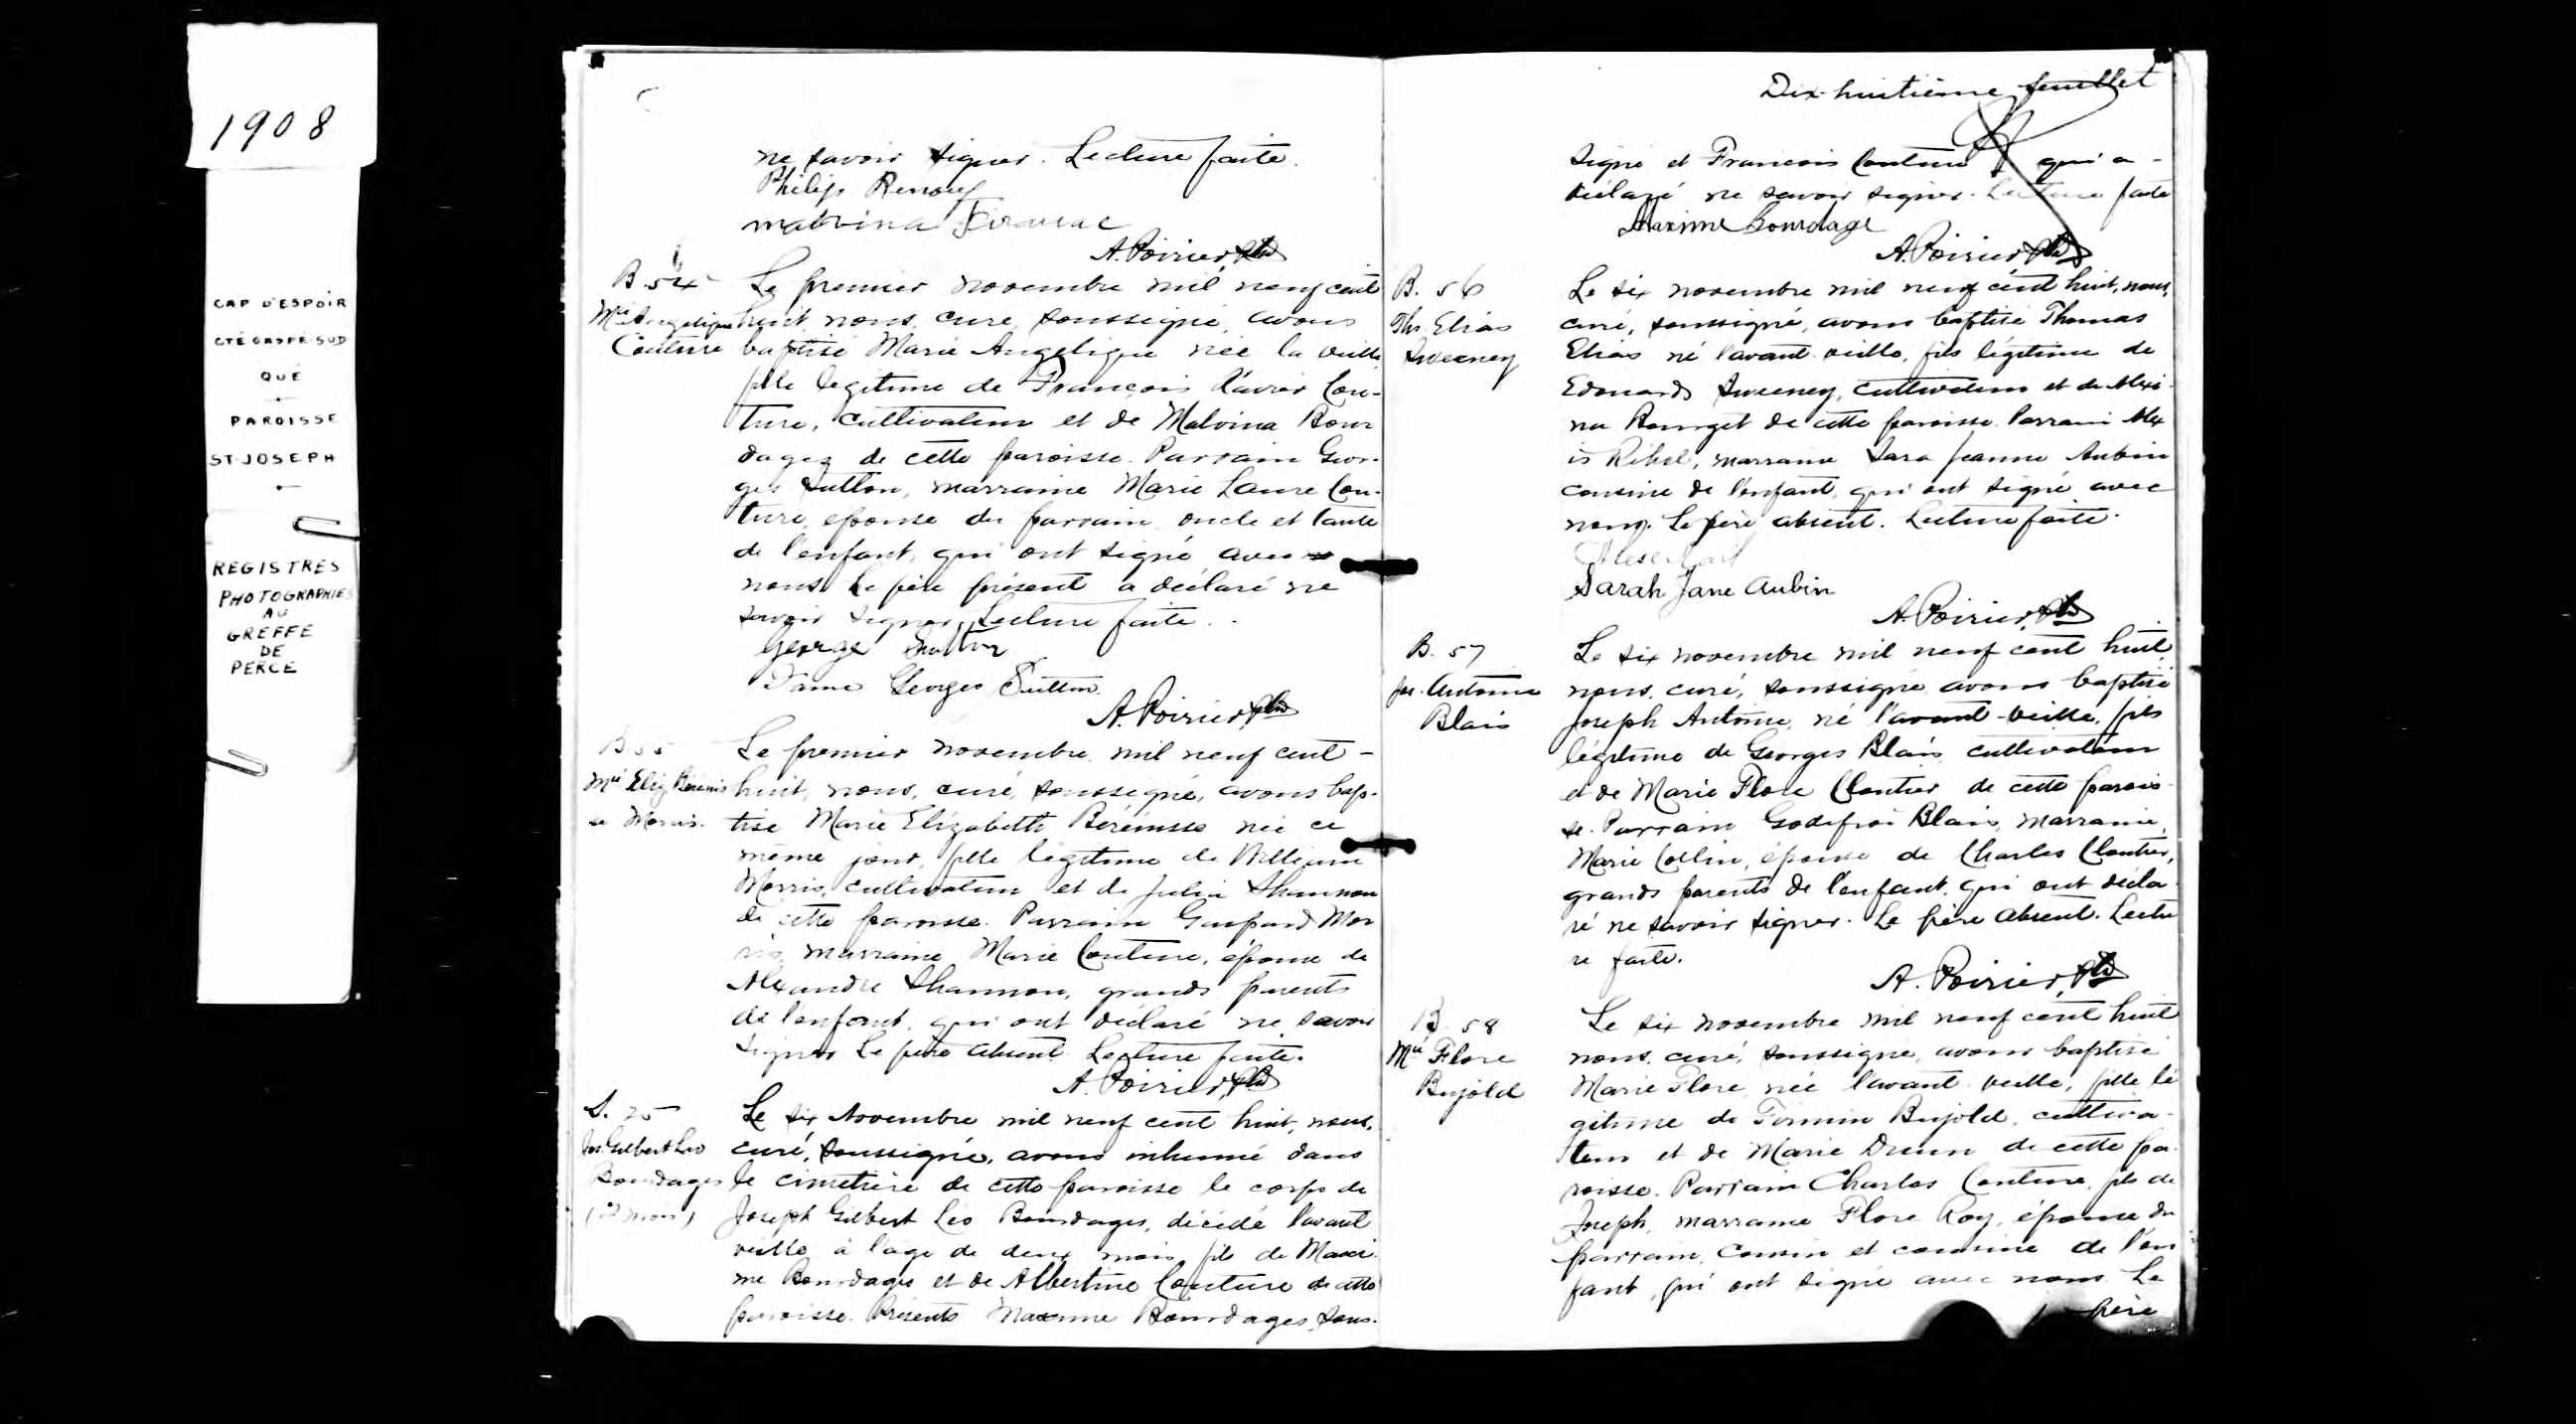 1908
CAP D'ESPOIR
CTÉ GASPÉ SUD
QUÉ
PAROISSE
ST-JOSEPH
REGISTRES
PHOTOGRAPHIÉS
AU
GREFFE
DE
PERCE
ne savoir signer. Lecture faite.
Philip Renouf
A. Poirier Ptre
B 54
Mie Angelique
Couture
Le premier novembre mil neuf cent
huit, nous, curé, soussigné, avons
baptisé Marie Angelique née la veille,
fille legitime de François Xavier Cou-
ture, cultivateur et de Malvina Bour
dages de cette paroisse. Parrain Geor-
ges Sutton, marraine Marie Laure Cou-
ture, épouse du parrain, oncle et tante
de l'enfant, qui ont signé avec
nous. Le père présent a déclaré ne
savoir signer. Lecture faite.
George Sutton
Dame Georges Sutton
A. Poirier Ptre
B 55
Mie Eliz Bérénis
se Morris.
Le premier novembre mil neuf cent-
huit, nous, curé, soussigné, avons bap-
tisé Marie Elizabeth Bérénisse née ce
même jour, fille légitime de William
Morris, cultivateur et de Julia Shannon
de cette paroisse. Parrain Gaspard Mor
ris, marraine Marie Couture, épouse de
Alexandre Shannon, grands parents
de l'enfant, qui ont déclaré ne savoir
signer. Le père absent. Lecture faite.
A. Poirier, Ptre
S. 25
Jos. Gilbert Léo
Bourdages
(2 mois)
Le six Novembre mil neuf cent huit, nous,
curé, soussigné, avons inhumé dans
le cimetière de cette paroisse le corps de
Joseph Gilbert Léo Bourdages, décédé l'avant
veille à l'age de deux mois, fils de Maxi-
me Bourdages et de Albertine Couture de cette
paroisse. Présents Maxime Bourdages, sous-
Dix-huitième feuillet
signé et Francois Couture qui a-
déclaré ne savoir signer. Lecture faite
Maxime Bourdage
A. Poirier Ptre
B. 56
Ths Elias
Sweeney
Le six novembre mil neuf cent huit, nous,
curé, soussigné, avons baptisé Thomas
Elias né l'avant-veille, fils légitime de
Edouard Sweeney, cultivateur et de Alexi-
na Bourget de cette paroisse. Parrain Alex
is marraine Sara Jeanne Aubin
cousine de l'enfant, qui ont signé avec
nous. Le père absent. Lecture faite.
Sarah Jane Aubin
A. Poirier, Ptre
B. 57
Jos. Antoine
Blais
Le six novembre mil neuf cent huit,
nous, curé, soussigné avons baptisé
Joseph Antoine, né l'avant-veille, fils
légitime de Georges Blais cultivateur
et de Marie Flore Cloutier de cette parois-
se. Parrain Godefroi Blais, marraine,
Marie Collin, épouse de Charles Cloutier,
grands parents de l'enfant, qui ont décla
ré ne savoir signer. Le père absent. Lectu
re faite.
A. Poirier, Ptre
B. 58
Mie Flore
Bujold
Le six novembre mil neuf cent huit
nous, curé, soussigné, avons baptisé
Marie Flore, née l'avant-veille, fille lé
gitime de Firmin Bujold, cultiva-
teur et de Marie Dunn de cette pa-
roisse. Parrain Charles Couture, fils de
Joseph, marraine Flore Roy, épouse du
parrain, cousin et cousine de l'en
fant, qui ont signé avec nous. Le
père